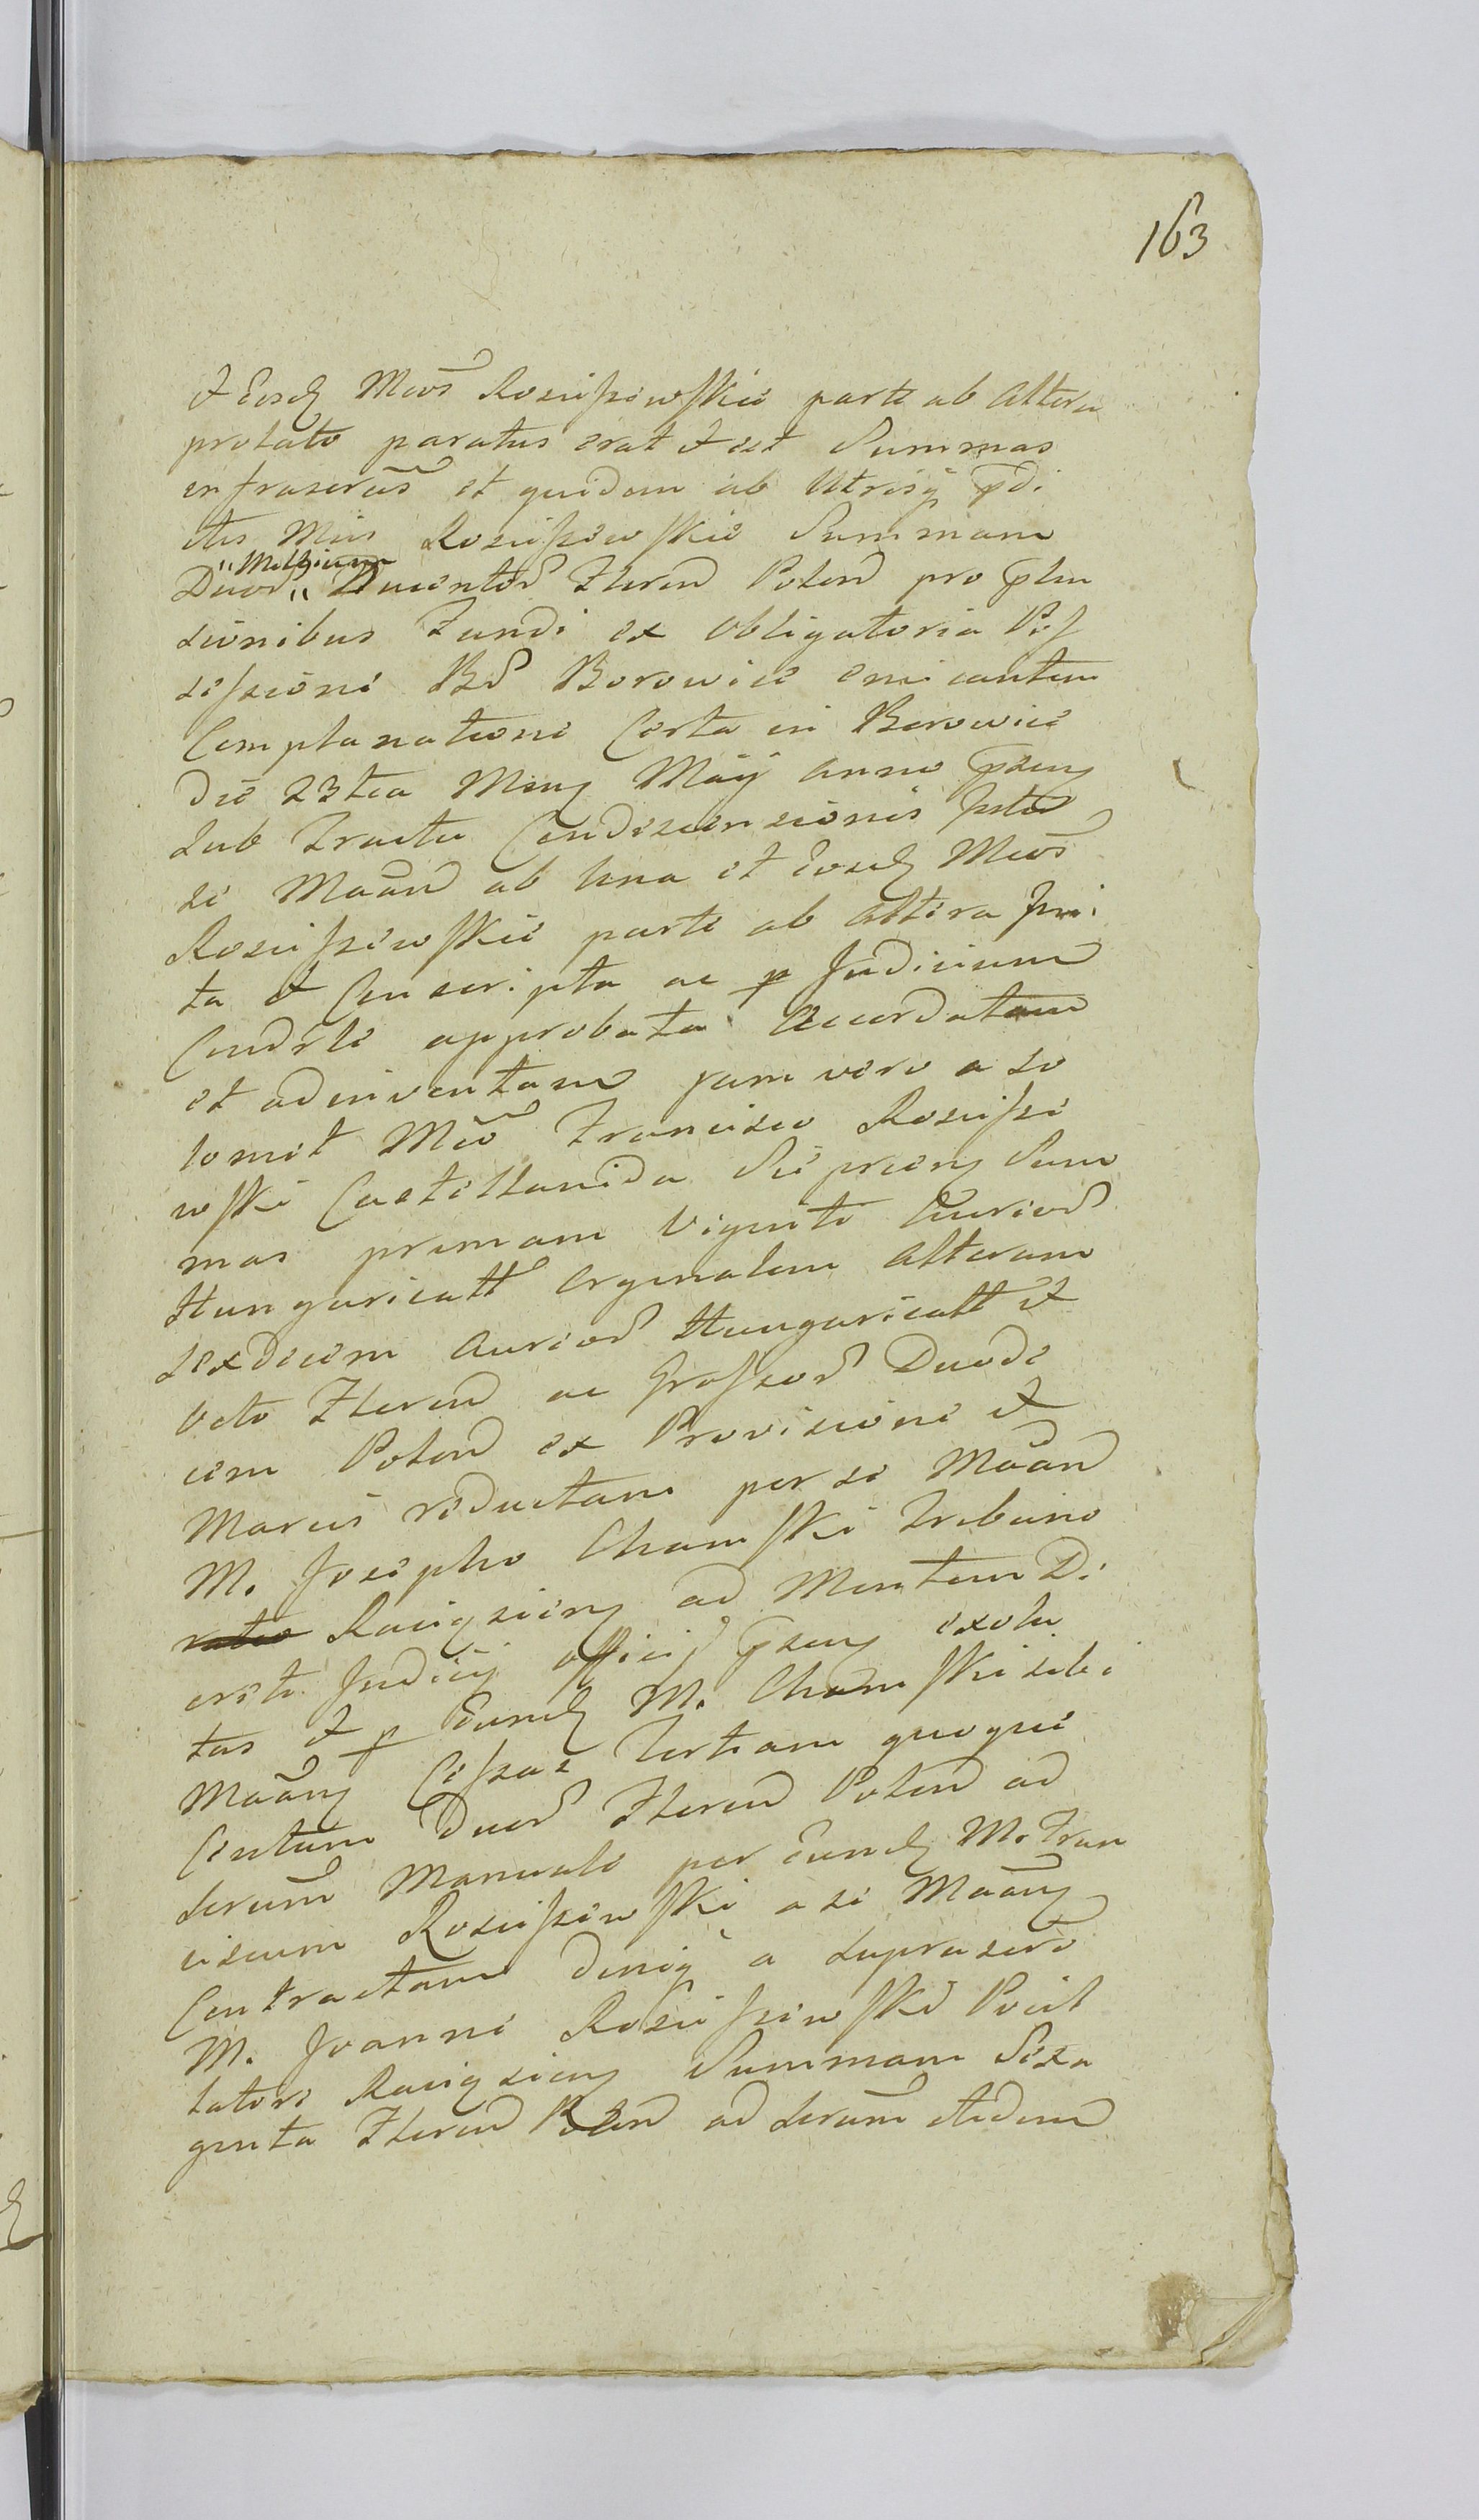 163
et Eosd Mcos Rosciszewskie parte ab Altera
prolato paratus erat et est Summas
infrascras et quidem ab Utrisq pdi
ctis Mcis Rosciszewskie Summam
"Millium
Duor" Ducentor Floren Polon pro
sionibus Fundi ex Obligatoria Pos
sessione Bor Borowice emicantem
Complanatione Certa in Borowice
die 23tia Mens Maij Anno psens
sub Tractu Condescensionis
se Maan ab Una et Eosd Mcos
Rosciszewskie parte ab Altera ini
ta et Conscripta ac p Judicium
Condsle approbata Accordatam
et adinventam jam vero a So
lomet Mco Francisco Roscisze
wski Castellanida Sieprcens Sum
mas primam Viginti Aureor
Hungaricall Orginalem Alteram
Sexdecim Aureor Hungaricall et
Octo Floren ac Grossor Duode
cim Polon ex Provisione et
Marcis reductam per se Maan
M. Josepho Chamski Tribuno
Raciąziens ad Mentem De
creti Judicij Officij psens exolu
tas et p Eund M. Chamski sibi
Maans Cessas Tertiam quoque
Centum Duor Floren Polon ad
Scrum Manuale per Eund M. Fran
ciscum Rosciszewski a se Maans
Contractam deniq a suprascro
M. Joanne Rosciszewski Pocil
latore Raciąziens Summam Sexa
ginta Floren Polon ad Scrum itidem